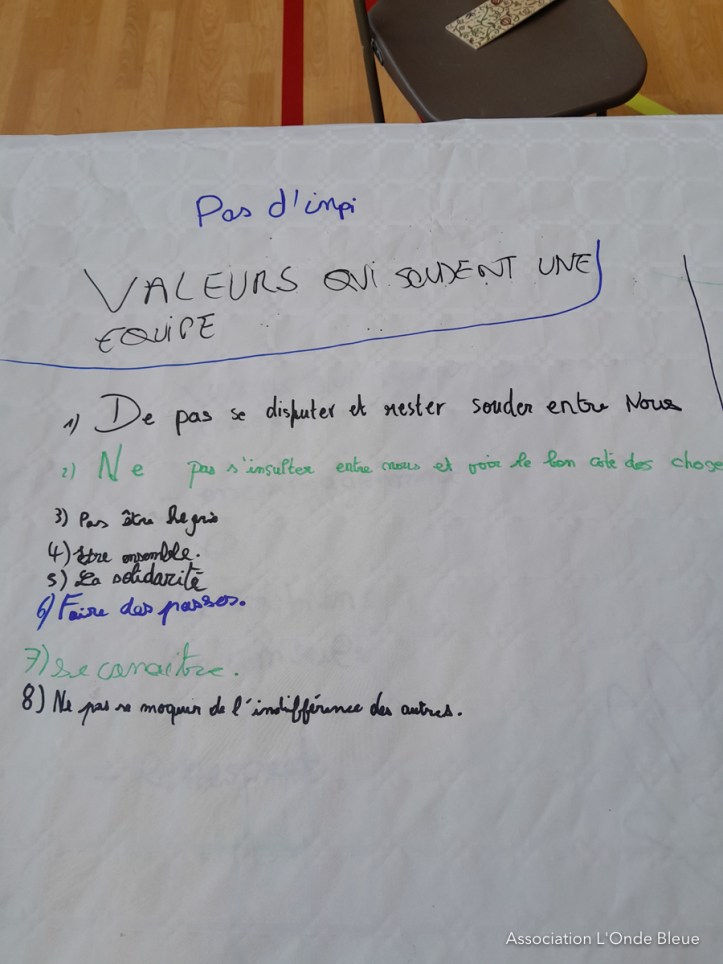 Pas d'impi
VALEURS QUI SOUDENT UNE
EQUIPE
1) De pas se disputer et rester souder entre Nous
2) Ne pas s'insulter entre nous et voir le bon coté des chose
3) Pas être
4) Etre ensemble.
5) La solidarité
6) Faire des passes.
7) Se conaitre.
8) Ne pas se moquer de l'indifférence des autres.
Association L'Onde Bleue